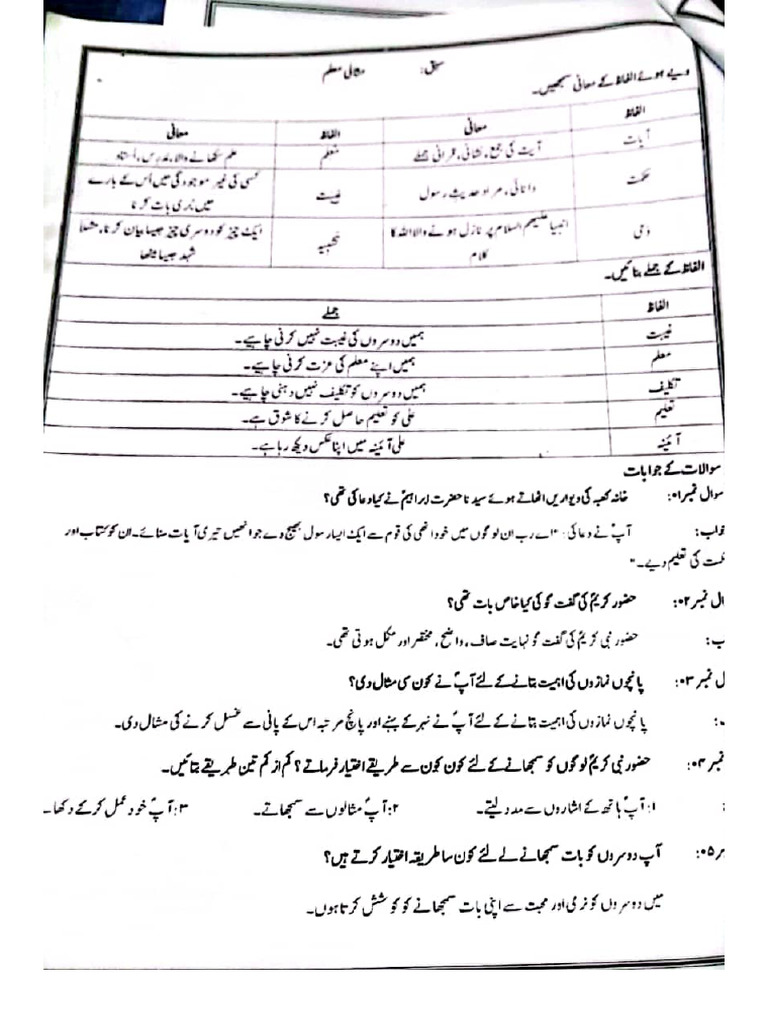 سبق: مثالی معلم
دیے ہوئے الفاظ کے معانی سمجھیں۔
الفاظ معانی الفاظ معانی
آیات آیت کی جمع، نشانی، قرآنی جملے معلم علم سکھانے والا، مدرس، استاد
حکمت دانائی، مراد حدیث رسول غیبت کسی کی غیر موجودگی میں اُس کے بارے
میں بُری بات کرنا
وحی انبیا علیہم السلام پر نازل ہونے والا اللہ کا تشبیہ ایک چیز کو دوسری چیز جیسا بیان کرنا، مثلاً
کلام شہد جیسا میٹھا
الفاظ کے جملے بنائیں۔
الفاظ جملے
غیبت ہمیں دوسروں کی غیبت نہیں کرنی چاہیے۔
معلم ہمیں اپنے معلم کی عزت کرنی چاہیے۔
تکلیف ہمیں دوسروں کو تکلیف نہیں دینی چاہیے۔
تعلیم علی کو تعلیم حاصل کرنے کا شوق ہے۔
آئینہ علی آئینہ میں اپنا عکس دیکھ رہا ہے۔
سوالات کے جوابات
سوال نمبر ۰۱: خانہ کعبہ کی دیواریں اٹھاتے ہوئے سیدنا حضرت ابراہیمؑ نے کیا دعا کی تھی؟
واب: آپؑ نے دعا کی: "اے رب ان لوگوں میں خود انھی کی قوم سے ایک ایسا رسول بھیج دے جو انھیں تیری آیات سنائے۔ ان کو کتاب اور
کمت کی تعلیم دے۔"
ال نمبر ۰۲: حضور کریمؐ کی گفت گو کی کیا خاص بات تھی؟
ب: حضور نبی کریمؐ کی گفت گو نہایت صاف، واضح، مختصر اور مکمل ہوتی تھی۔
ل نمبر ۰۳: پانچوں نمازوں کی اہمیت بتانے کے لئے آپؐ نے کون سی مثال دی؟
پانچوں نمازوں کی اہمیت بتانے کے لئے آپؐ نے نہر کے بہنے اور پانچ مرتبہ اس کے پانی سے غسل کرنے کی مثال دی۔
نمبر ۰۴: حضور نبی کریمؐ لوگوں کو سمجھانے کے لئے کون کون سے طریقے اختیار فرماتے؟ کم از کم تین طریقے بتائیں۔
۱: آپؐ ہاتھ کے اشاروں سے مدد لیتے۔ ۲: آپؐ مثالوں سے سمجھاتے۔ ۳: آپؐ خود عمل کر کے دکھا۔
ر ۰۵: آپ دوسروں کو بات سمجھانے لے لئے کون سا طریقہ اختیار کرتے ہیں؟
میں دوسروں کو نرمی اور محبت سے اپنی بات سمجھانے کو کوشش کرتا ہوں۔